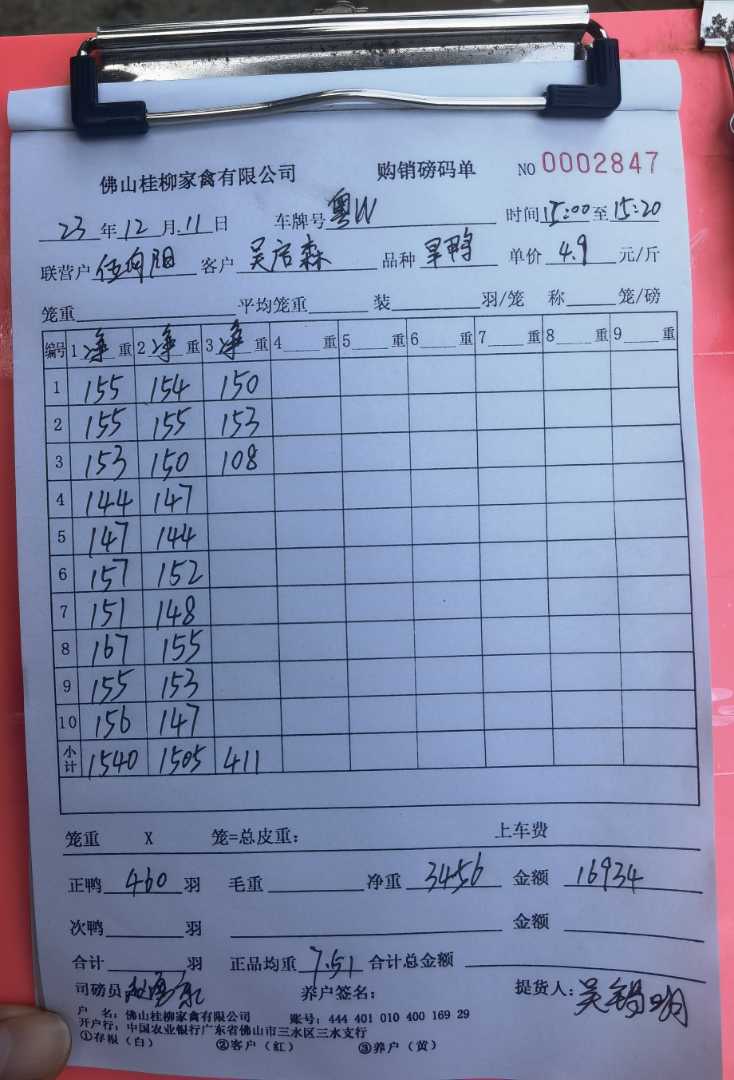 佛山桂柳家禽有限公司 购销磅码单 NO 0002847
23 年 12 月 11 日 车牌号 粤W 时间 15:00 至 15:20
联营户 伍向阳 客户 吴启森 品种 旱鸭 单价 4.9 元/斤
笼重 平均笼重 装 羽/笼 称 笼/磅
编号 1 净 重 2 净 重 3 净 重 4 重 5 重 6 重 7 重 8 重 9 重
1 155 154 150
2 155 155 153
3 153 150 108
4 144 147
5 147 144
6 157 152
7 151 148
8 167 155
9 155 153
10 156 147
小计 1540 1505 411
笼重 X 笼=总皮重: 上车费
正鸭 460 羽 毛重 净重 3456 金额 16934
次鸭 羽 金额
合计 羽 正品均重 7.51 合计总金额
司磅员 养户签名: 提货人: 吴锡明
户 名: 佛山桂柳家禽有限公司 账号: 444 401 010 400 169 29
开户行: 中国农业银行广东省佛山市三水区三水支行
①存根（白） ②客户（红） ③养户（黄）